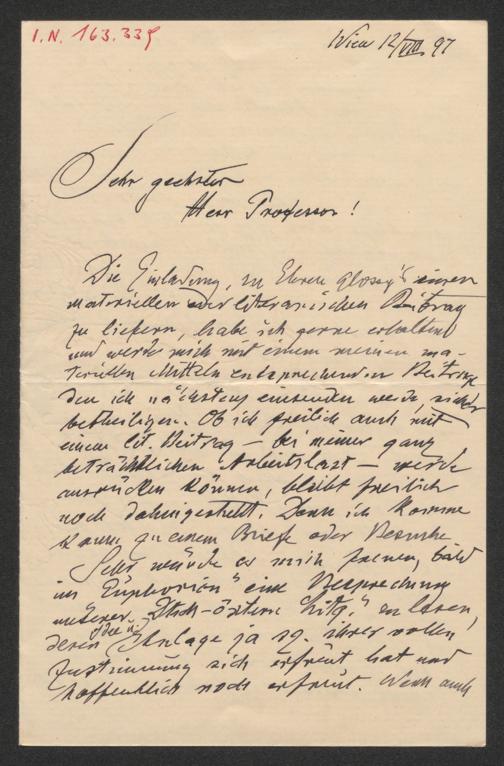 I.N. 163.339
Wien 12/VIII 97
Sehr geehrter
Herr Professor!
Die Einladung, zu Ehren Glossy's einen
materiellen oder literarischen Beitrag
zu liefern, habe ich gerne erhalten
und werde mich mit einem meinen ma-
teriellen Mitteln entsprechenden Beitrag,
den ich nächstens einsenden werde, sicher
betheiligen. Ob ich freilich auch mit
einem lit. Beitrag – bei meiner ganz
beträchtlichen Arbeitslast – werde
ausrücken können, bleibt freilich
noch dahingestellt. Denn ich komme
kaum zu einem Briefe oder Besuche
Sehr würde es mich freuen, bald
im "Euphorion" eine Besprechung
unserer "Dtsch-österr. Litg." zu lesen,
deren Idee u. Anlage ja sg. ihrer vollen
Zustimmung sich erfreut hat und
hoffentlich noch erfreut. Wenn auch